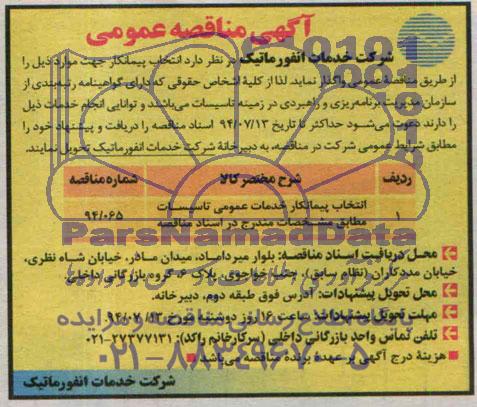 آگهی مناقصه عمومی
شرکت خدمات انفورماتیک در نظر دارد انتخاب پیمانکار جهت موارد ذیل را
از طریق مناقصه عمومی واگذار نماید. لذا از کلیه اشخاص حقوقی که دارای گواهینامه رتبه‌بندی از
سازمان مدیریت برنامه‌ریزی و راهبردی در زمینه تاسیسات می‌باشند و توانایی انجام خدمات ذیل
را دارند دعوت می‌شود حداکثر تا تاریخ ۹۴/۰۷/۱۳ اسناد مناقصه را دریافت و پیشنهاد خود را
مطابق شرایط عمومی شرکت در مناقصه، به دبیرخانه شرکت خدمات انفورماتیک تحویل نمایند.
ردیف شرح مختصر کالا شماره مناقصه
۱ انتخاب پیمانکار خدمات عمومی تاسیسات ۹۴/۰۶۵
مطابق مشخصات مندرج در اسناد مناقصه
ParsNamadData
محل دریافت اسناد مناقصه: بلوار میرداماد، میدان مادر، خیابان شاه نظری،
خیابان مددکاران (نظام سابق)، جنب خواجوی، پلاک ۶، گروه بازرگانی داخلی
محل تحویل پیشنهادات: آدرس فوق طبقه دوم، دبیرخانه.
مهلت تحویل پیشنهادات: ساعت ۱۶ روز دوشنبه مورخ ۹۴/۰۷/۱۳
تلفن تماس واحد بازرگانی داخلی (سرکار خانم راکد): ۲۷۳۷۷۱۳۱-۰۲۱
هزینه درج آگهی بر عهده برنده مناقصه می‌باشد
۰۲۱-۸۸۳۴۹۶۷۰-۵
شرکت خدمات انفورماتیک